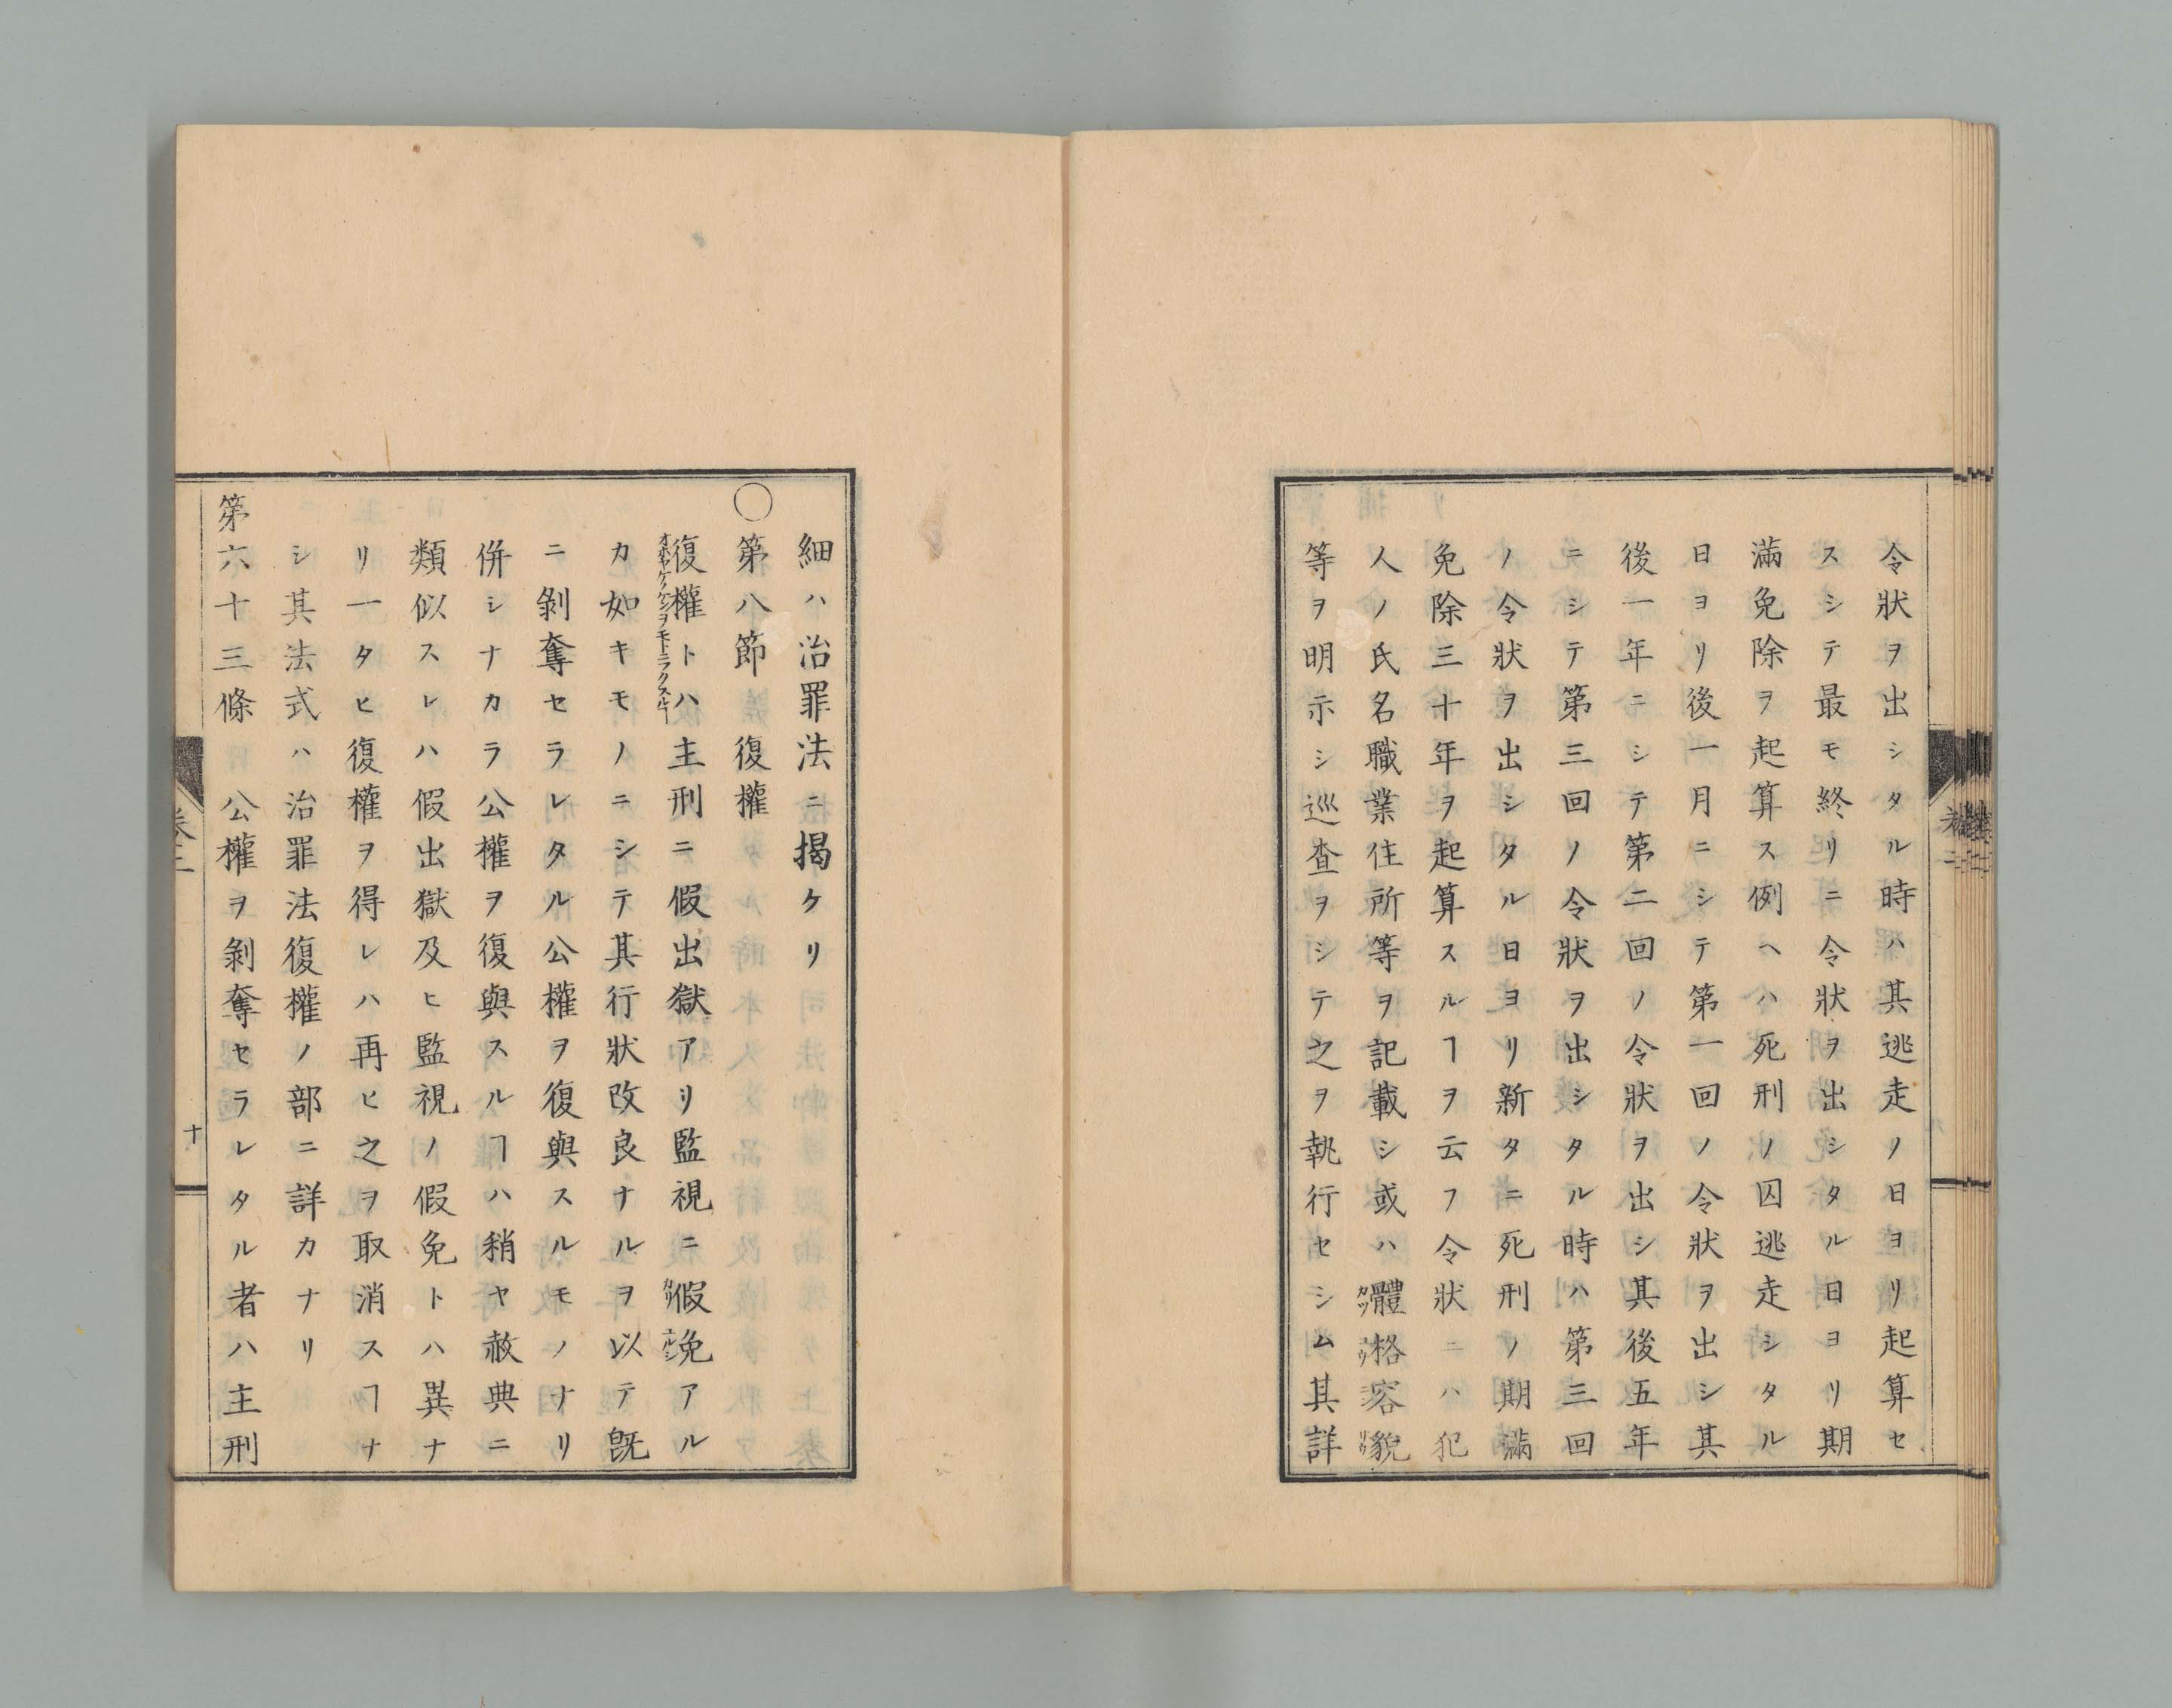 令狀ヲ出シタル時ハ其逃走ノ日ヨリ起算セ
スシテ最モ終リニ令狀ヲ出シタル日ヨリ期
滿免除ヲ起算ス例ヘハ死刑ノ囚逃走シタル
日ヨリ後一月ニシテ第一回ノ令狀ヲ出シ其
後一年ニシテ第二回ノ令狀ヲ出シ其後五年
ニシテ第三回ノ令狀ヲ出シタル時ハ第三回
ノ令狀ヲ出シタル日ヨリ新タニ死刑ノ期滿
免除三十年ヲ起算スルヿヲ云フ令狀ニハ犯
人ノ氏名職業住所等ヲ記載シ或ハ體格容貌
等ヲ明示シ巡査ヲシテ之ヲ執行セシム其詳
細ハ治罪法ニ揭ケリ
○第八節復權
復權トハ主刑ニ假出獄アリ監視ニ假免アル
オホヤケノケンヲモトニフクスルヿ
カリ
カ如キモノニシテ其行狀改良ナルヲ以テ既
ニ剝奪セラレタル公權ヲ復與スルモノナリ
併シナカラ公權ヲ復與スルヿハ稍ヤ赦典ニ
類似スレハ假出獄及ヒ監視ノ假免トハ異ナ
リ一タヒ復權ヲ得レハ再ヒ之ヲ取消スヿナ
シ其法式ハ治罪法復權ノ部ニ詳カナリ
第六十三條 公權ヲ剝奪セラレタル者ハ主刑
十